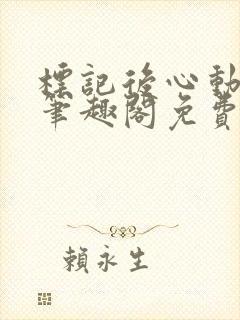 標記後心動
筆趣閣免費
賴永生